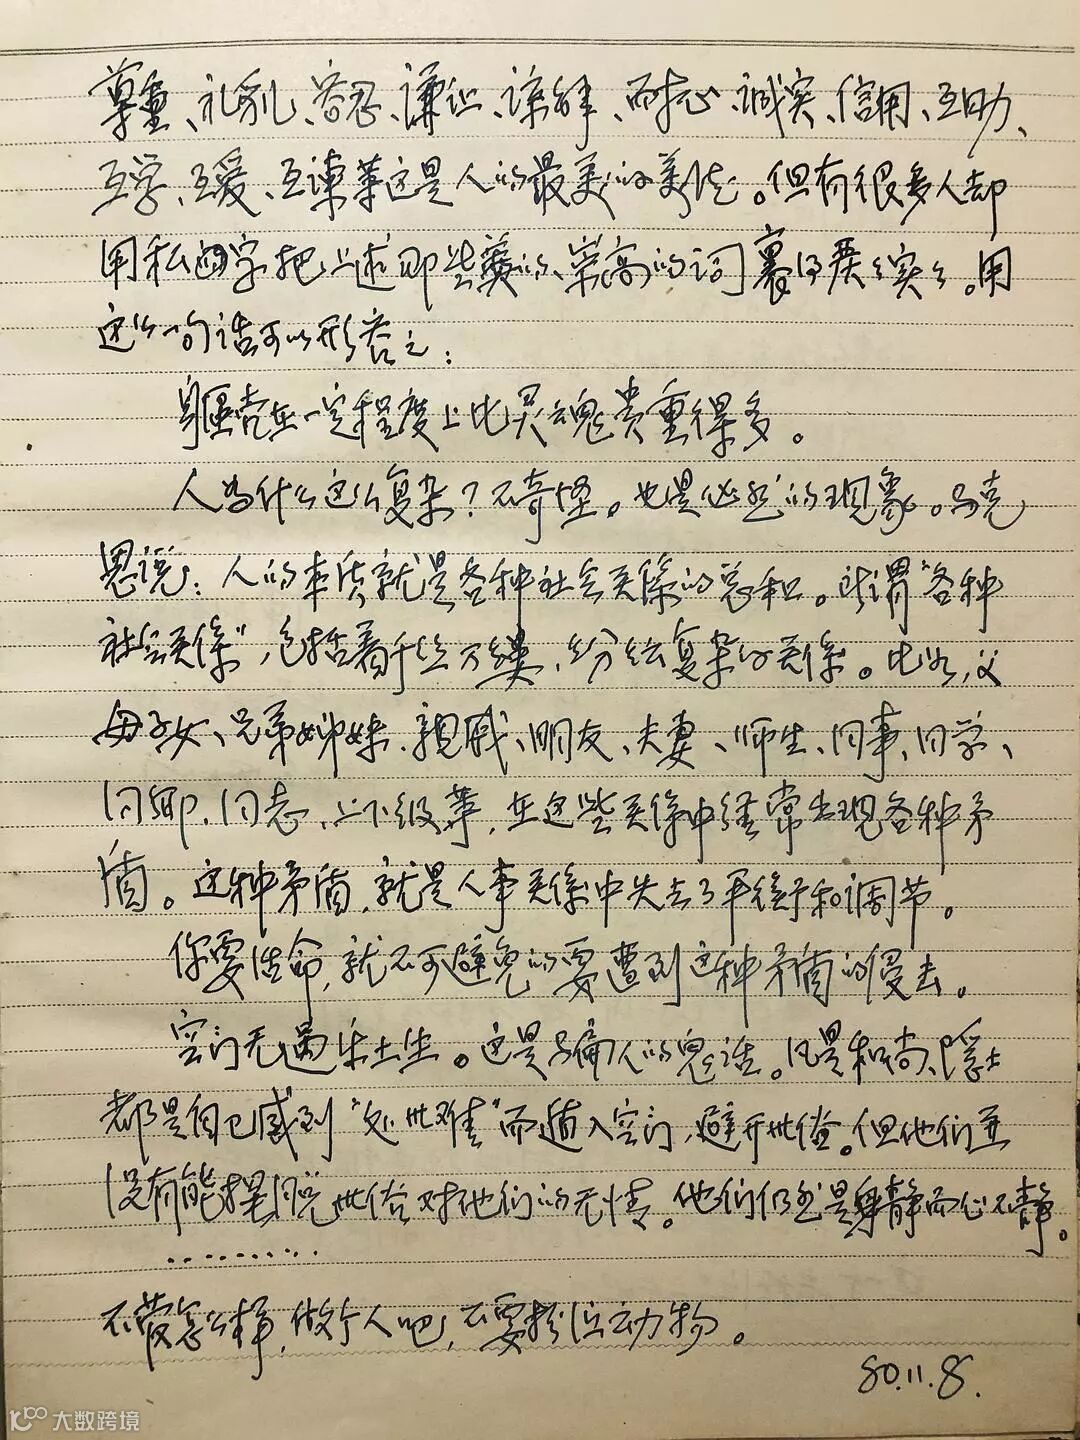 尊重、礼貌、容忍、谦让、谅解、耐心、诚实、信用、互助、
互学、互爱、互谏等这是人的最美的美德。但有很多人却
用私字把上述那些美的、崇高的词裹得严严实实。用
这么一句话可以形容之：
躯壳在一定程度上比灵魂贵重得多。
人为什么这么复杂？不奇怪。也是必然的现象。马克
思说：人的本质就是各种社会关系的总和。所谓“各种
社会关係”，包括着千丝万缕，纷纭复杂的关係。比如，父
母子女、兄弟姊妹、親戚、朋友、夫妻、师生、同事、同学、
同鄉、同志、上下级等，在这些关係中经常出现各种矛
盾。这种矛盾，就是人事关係中失去了平衡和调节。
你要活命，就不可避免的要遭到这种矛盾的侵去。
空门无遇乐土坐。这是骗人的鬼话。凡是和尚、隐士
都是自己感到“处世难”而遁入空门，避开世俗。但他们並
没有能摆脱世俗对他们的无情。他们仍然是身静而心不静。
………
不管怎么样，做个人吧，不要撈泣动物。
80.11.8.
大数跨境